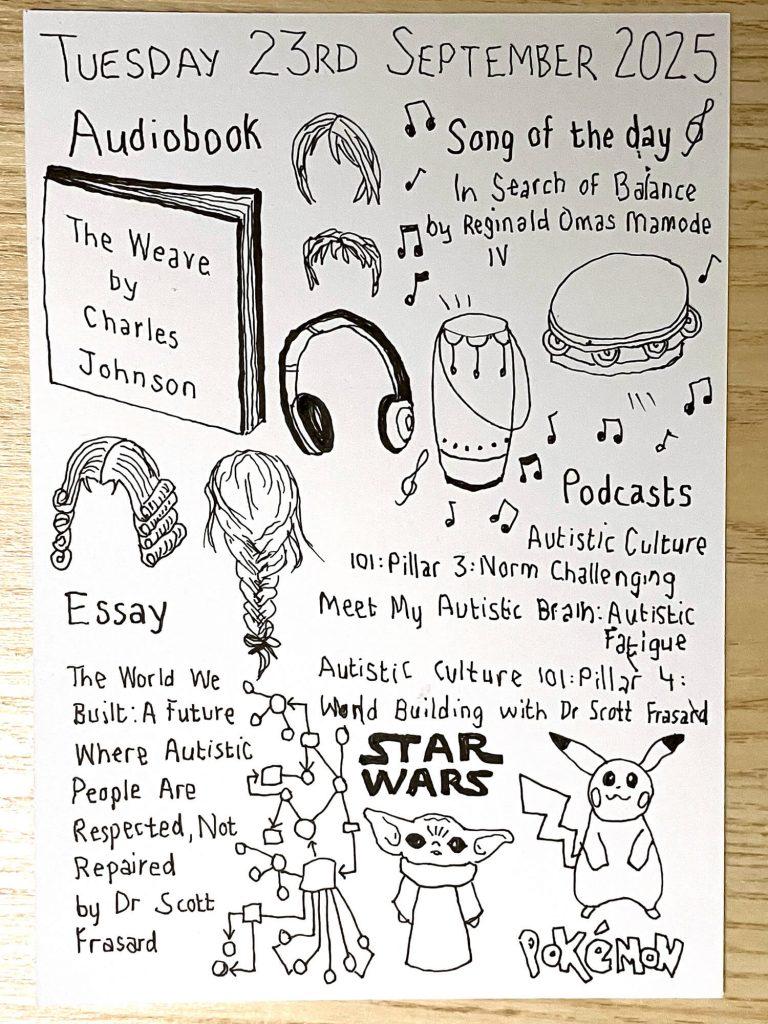 TUESDAY 23RD SEPTEMBER 2025
Audiobook
The Weave
by
Charles
Johnson
Song of the day
In Search of Balance
by Reginald Omas Mamode
IV
Podcasts
Autistic Culture
101:Pillar 3:Norm Challenging
Meet My Autistic Brain:Autistic
Fatigue
Autistic Culture 101:Pillar 4:
World Building with Dr Scott Frasard
Essay
The World We
Built:A Future
Where Autistic
People Are
Respected, Not
Repaired
by Dr Scott
Frasard
STAR
WARS
POKéMON